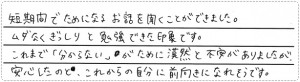 短期間でためになるお話を聞くことができました。
ムダなくぎっしりと勉強できた印象です。
これまで「分からない」がために漠然と不安がありましたが、
安心したのと、これからの自分に前向きになれそうです。